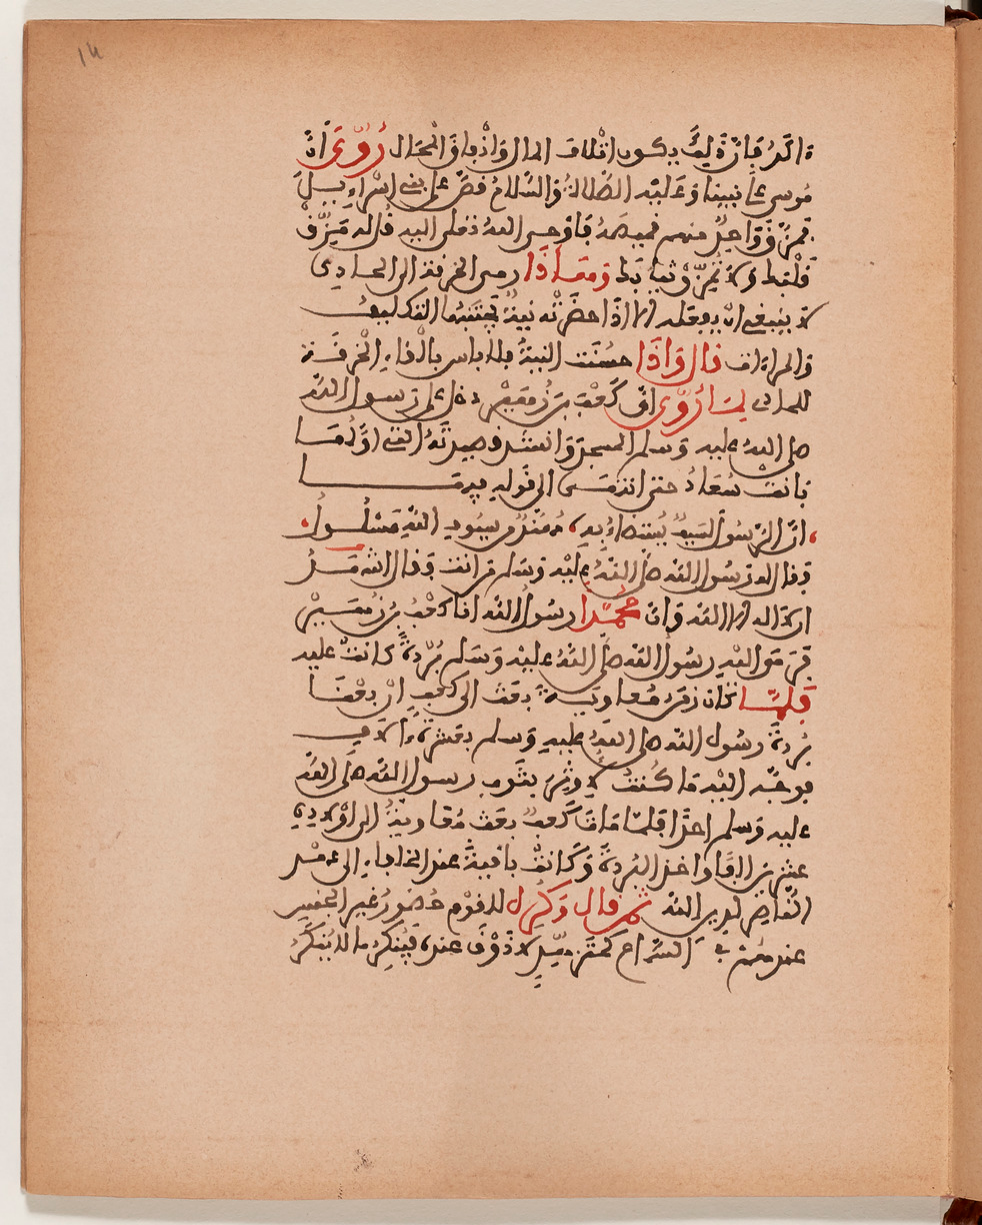 14
ذالك فان ذلك يكون اتلاف المال وانفاق المحال رُوِيَ ان
موسى على نبينا وعليه الصلاة والسلام قص على بني اسراءيل
فمزق واحد منهم قميصه فاوحى الله تعلى اليه قل له مزق
قلبك ولا تمزق ثيابك ومعاذا رمى الخرقة الى الحادي
لا ينبغي ان يفعله الا اذا حضرته نية يجتنبها التكليف
والمراءات قال واذا حسنت النية فلا باس بالقاء الخرقة
للحادي لما رُوِيَ ان كعب بن زهير دخل على رسول الله
صلى الله عليه وسلم المسجد وانشد قصيدته التي اولها
بانت سعاد حتى انتهى الى قوله فيها
ان الرسول لسيف يستضاء به، مهند من سيوف الله مسلول
فقال له رسول الله صلى الله عليه وسلم من انت فقال اشهد
ان لا اله الا الله وان محمدا رسول الله انا كعب بن زهير
فرمى اليه رسول الله صلى الله عليه وسلم بردة كانت عليه
فلما كان زمن معاوية بعث الى كعب ان بعنا
بردة رسول الله صلى الله عليه وسلم بعشرة ءالاف
فوجه اليه ما كنت لاوثر بثوب رسول الله صلى الله
عليه وسلم احدا فلما مات كعب بعث معاوية الى اولاده
عشرين الفا واخذ البردة وكانت باقية عند الخلفاء الى عهد
الناصر لدين الله ثم قال وكره للقوم حضور غير الجنس
عندهم في السماع كمتزهد لا ذوق عنده فينكر ما لا ينكر